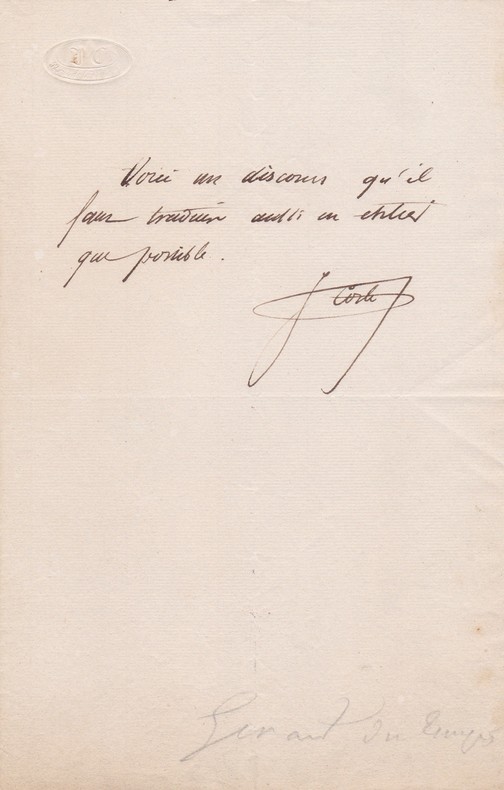 Voici un discours qu'il
faut traduire aussi en entier
que possible.
Gérant du Temps